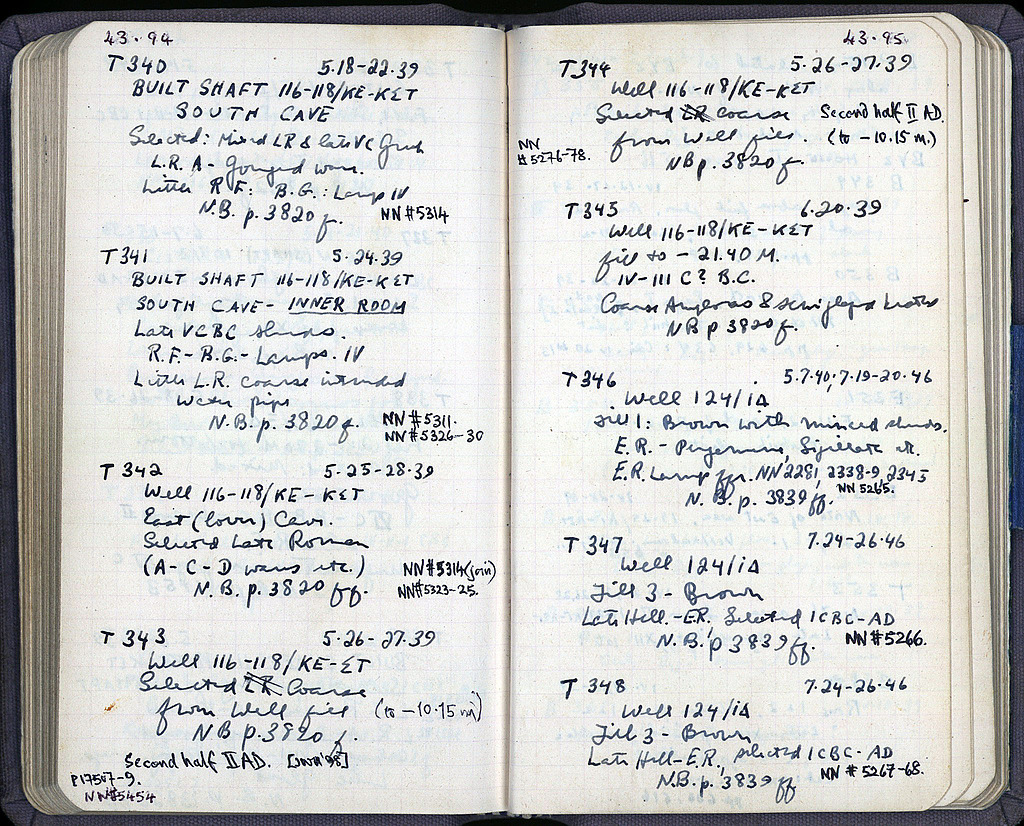 43·94
T 340 5·18-22·39
BUILT SHAFT 116-118/ΚΕ-ΚΣΤ
SOUTH CAVE
Selected: Mixed LR & late VC Greek
L.R. A- Gouged ware.
Little R.F: B.G.: Lamp IV
N.B. p. 3820 f. NN #5314
T 341 5·24·39
BUILT SHAFT 116-118/ΚΕ-ΚΣΤ
SOUTH CAVE- INNER ROOM
Late VCBC sherds.
R.F.- B.G.- Lamps. IV
Little L.R. coarse intruded
Water pipe
N.B. p. 3820 f. NN #5311.
NN #5326-30
T 342 5-25-28·39
Well 116-118/ΚΕ-ΚΣΤ
East (lower) Cave.
Selected Late Roman
(A-C-D wares etc.) NN #5314 (join)
N.B. p. 3820 ff. NN #5323-25.
T 343 5·26-27·39
Well 116-118/ΚΕ-ΣΤ
Selected LR Coarse
from Well fill (to -10·15 m)
NB p. 3820 f.
Second half II AD.
P17507-9.
NN #5454
43·95
T 344 5·26-27·39
Well 116-118/ΚΕ-ΚΣΤ
Selected LR Coarse Second half II AD.
from Well fill. (to -10.15 m.)
NN #5276-78.
NB p. 3820 f.
T 345 6.20·39
Well 116-118/ΚΕ-ΚΣΤ
fill to - 21.40 M.
IV-III C? B.C.
Coarse Amphoras & semiglazed
NB p 3820 f.
T 346 5.7.40, 7.19-20.46
Well 124/ΙΔ
Fill 1: Brown with mixed sherds.
E.R. - Pergamene, Sigillata etc.
E.R. Lamp ffr. NN 2281, 2338-9, 2345
N.B. p. 3839 ff. NN 5265.
T 347 7.24-26·46
Well 124/ΙΔ
Fill 3- Brown
Late Hell.-E.R., Selected 1CBC-AD
N.B. p 3839 ff. NN #5266.
T 348 7.24-26.46
Well 124/ΙΔ
Fill 3- Brown
Late Hell-E.R., selected 1CBC-AD
N.B. p. 3839 ff NN #5267-68.